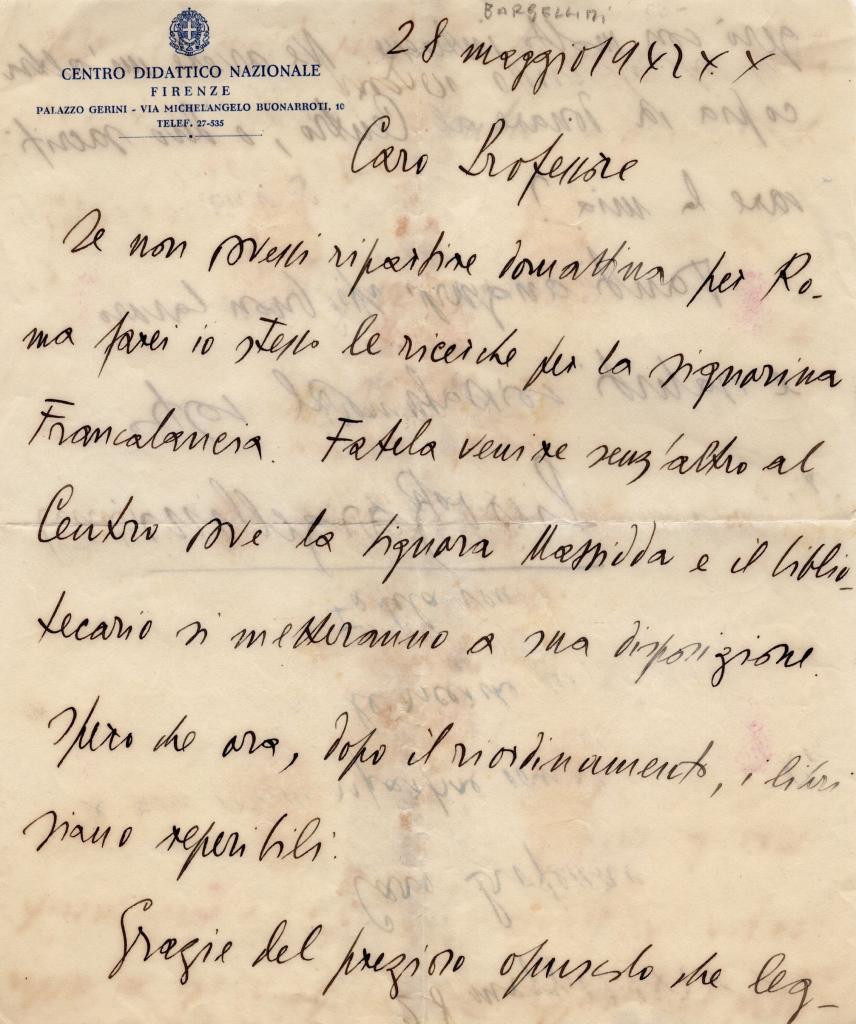 BARGELLINI
28 maggio 1942 XX
CENTRO DIDATTICO NAZIONALE
FIRENZE
PALAZZO GERINI - VIA MICHELANGELO BUONARROTI, 10
TELEF. 27-535
Caro Professore
Se non avessi ripartire domattina per Ro-
ma farei io stesso le ricerche per la signorina
Francalancia. Fatela venire senz'altro al
Centro ove la signora Massidda e il biblio-
tecario si metteranno a sua disposizione.
Spero che ora, dopo il riordinamento, i libri
siano reperibili.
Grazie del prezioso opuscolo che leg-